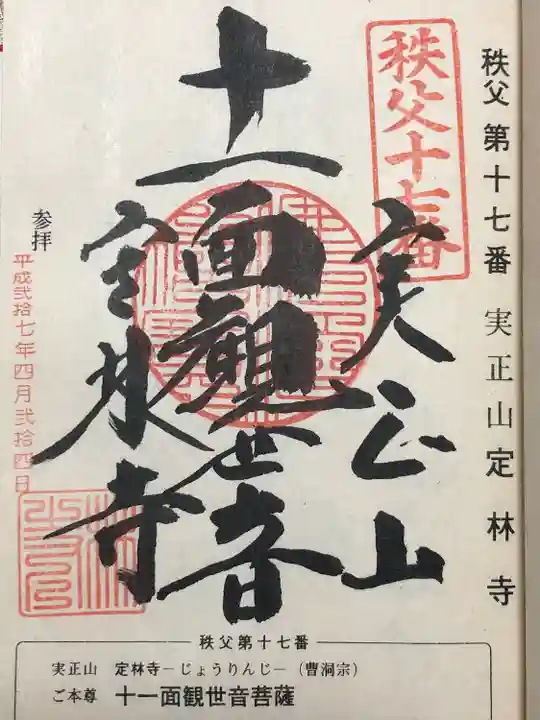 秩父 第十七番 実正山 定林寺
秩父十七番
実正山
十一面観世音
定林寺
参拝
平成弐拾七年四月弐拾四日
秩父第十七番
実正山 定林寺－じょうりんじ－（曹洞宗）
ご本尊 十一面観世音菩薩